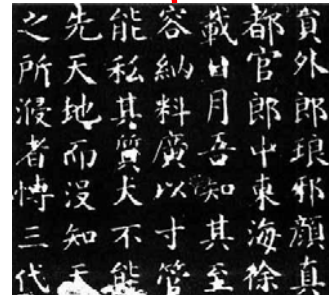 貟外郎琅邪顏真
都官郎中東海徐
載日月吾知其至
容納料廣以寸管
能私其質不能
先天地而沒知天
之所者愽三代